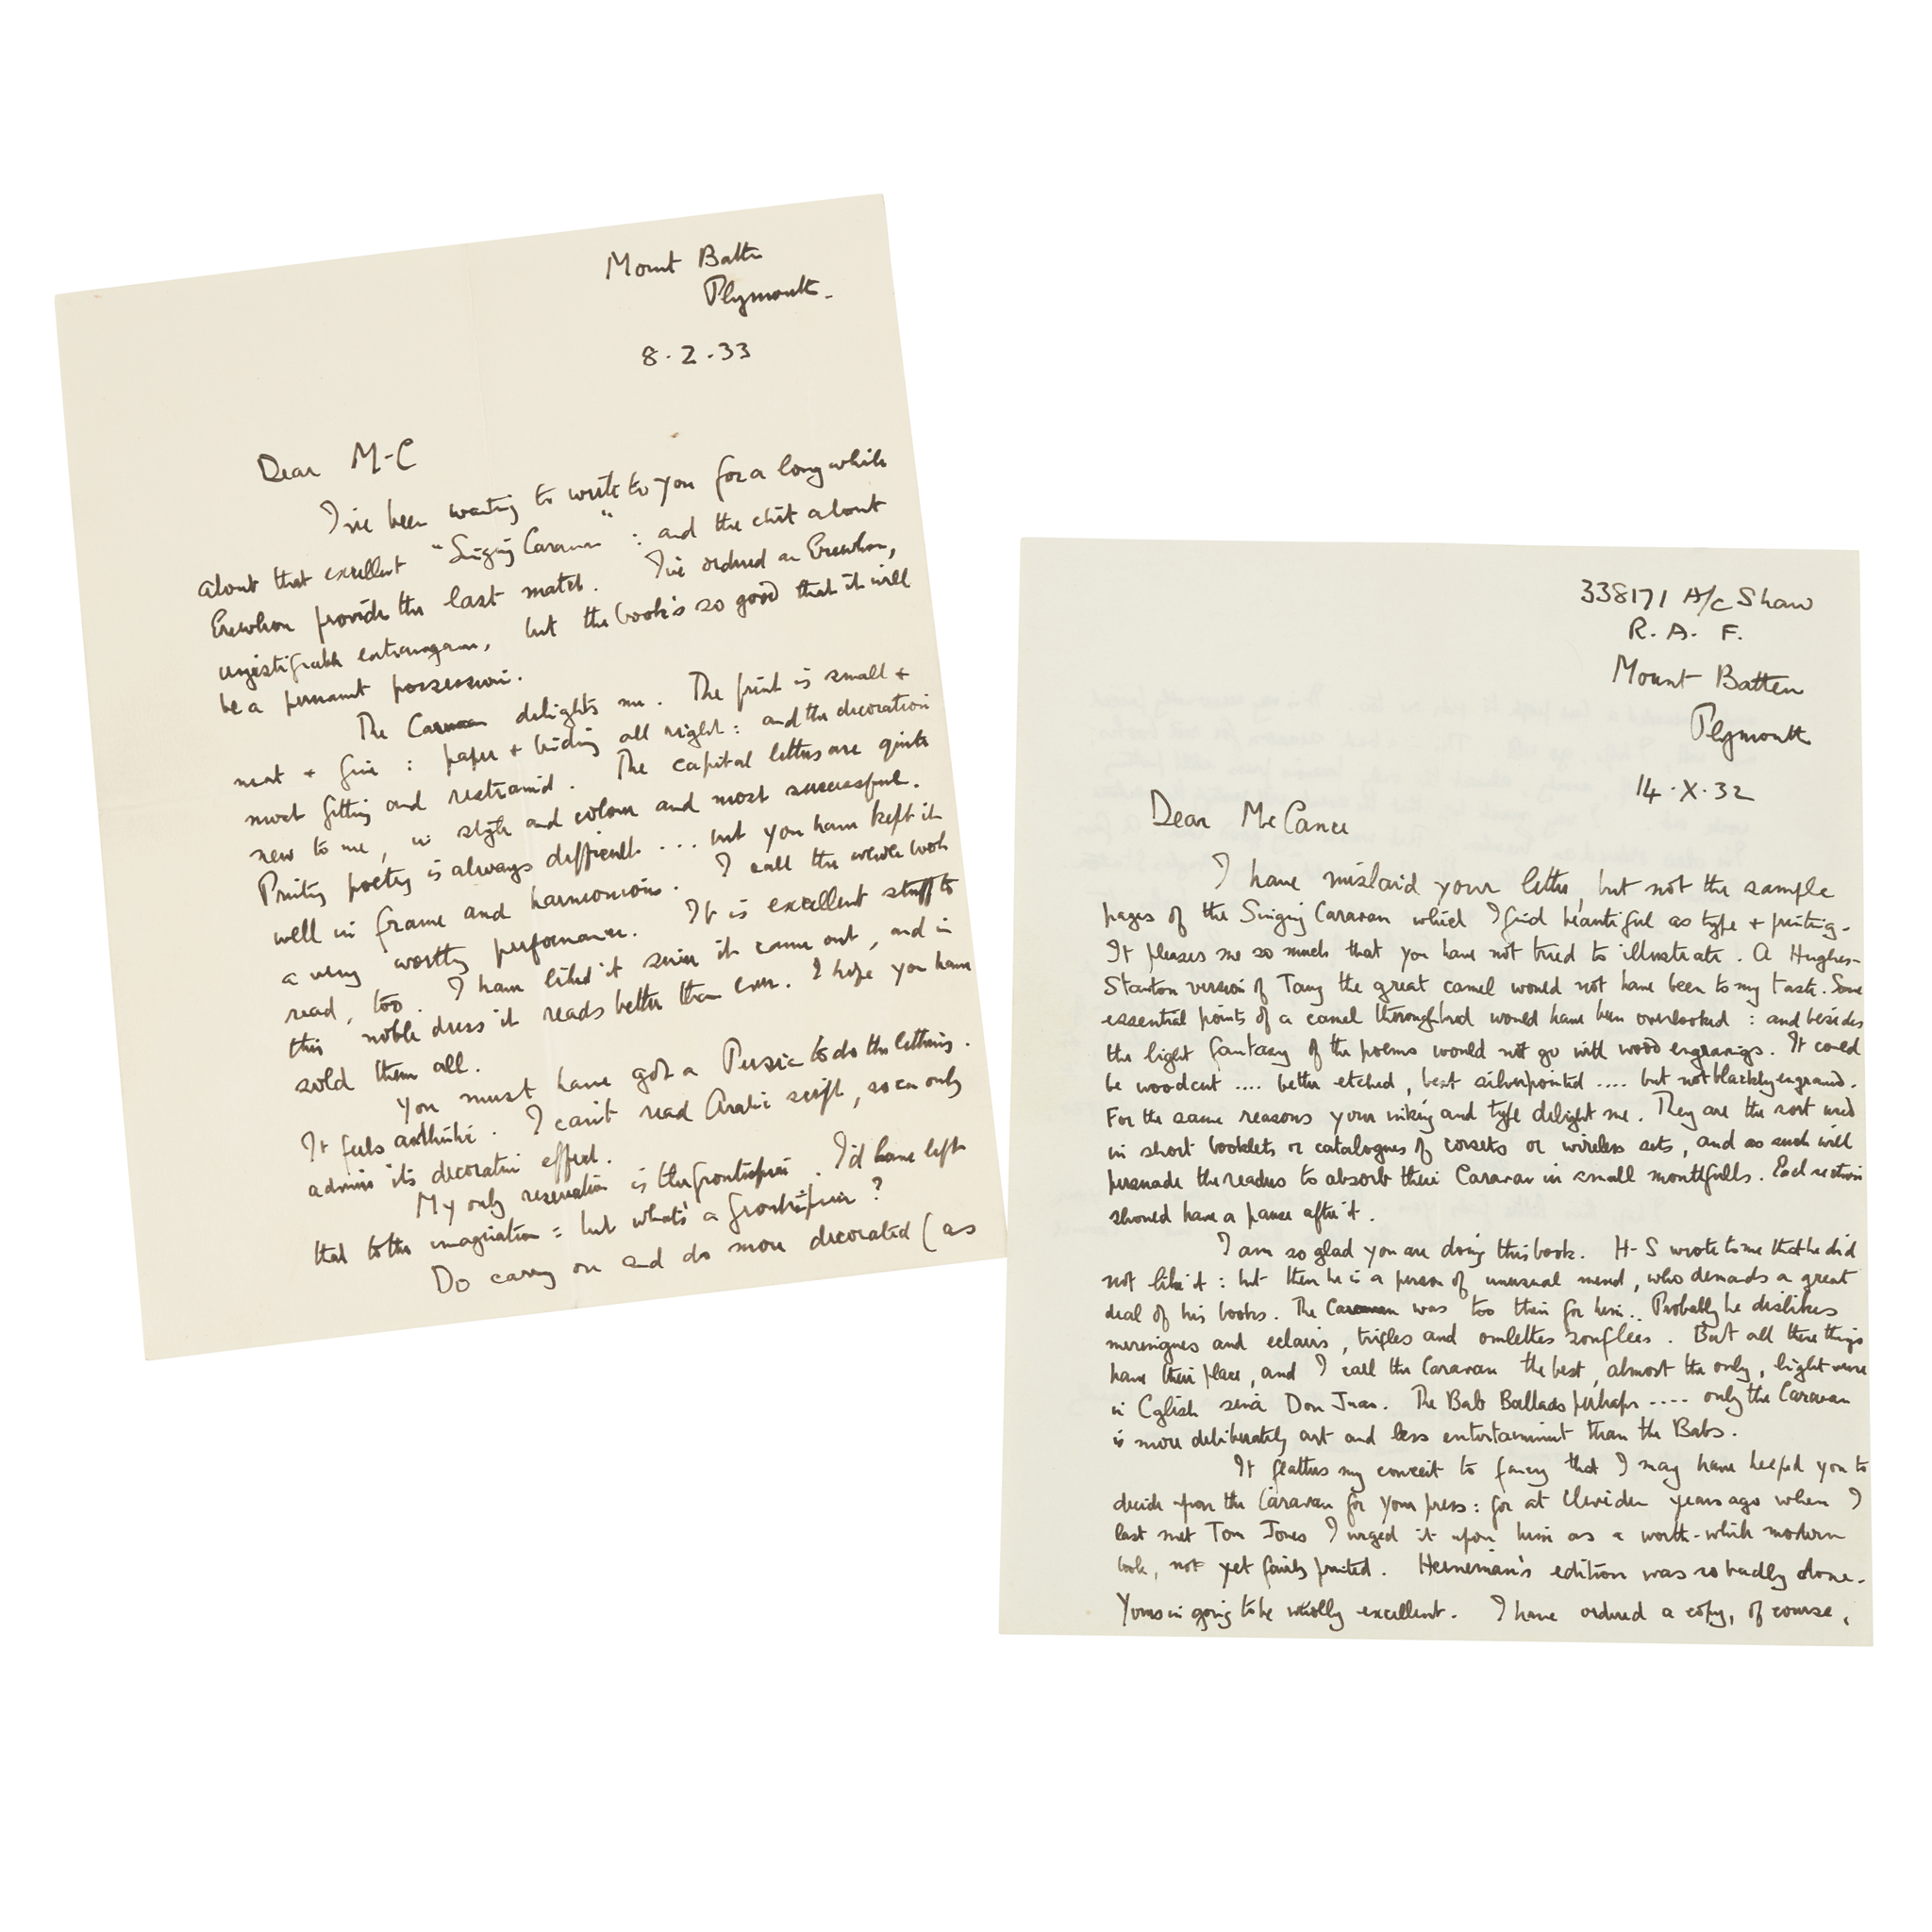 Mount Batten
Plymouth.
8.2.33
Dear M-C
I've been wanting to write to you for a long while
about that excellent "Singing Caravan" : and the chit about
Erewhon provides the last match. I've ordered an Erewhon,
unjustifiable extravagance, but the book's so good that it will
be a permanent possession.
The Caravan delights me. The print is small +
neat + fine : paper + binding all right : and the decoration
most fitting and restrained. The capital letters are quite
new to me, in style and colour and most successful.
Printing poetry is always difficult ... but you have kept it
well in frame and harmonious. I call the whole book
a very worthy performance. It is excellent stuff to
read, too. I have liked it since it came out, and in
this noble dress it reads better than ever. I hope you have
sold them all.
You must have got a Persian to do the lettering.
It feels authentic. I can't read Arabic script, so can only
admire its decorative effect.
My only reservation is the frontispiece. I'd have left
that to the imagination : but what's a frontispiece ?
Do carry on and do more decorated (as
338171 A/c Shaw
R. A. F.
Mount Batten
Plymouth
14.X.32
Dear McCance
I have mislaid your letter, but not the sample
pages of the Singing Caravan which I find beautiful as type + printing.
It pleases me so much that you have not tried to illustrate. A Hughes-
Stanton version of Tang the great camel would not have been to my taste. Some
essential points of a camel thoroughbred would have been overlooked : and besides
the light fantasy of the poems would not go with wood engravings. It could
be woodcut .... better etched, best silverpointed .... but not blackly engraved.
For the same reasons your inking and type delight me. They are the sort used
in short booklets or catalogues of corsets or wireless sets, and as such will
persuade the readers to absorb their Caravan in small mouthfulls. Each section
should have a pause after it.
I am so glad you are doing this book. H-S wrote to me that he did
not like it : but then he is a person of unusual mind, who demands a great
deal of his books. The Caravan was too thin for him.. Probably he dislikes
meringues and eclairs, trifles and omlettes souflees. But all these things
have their place, and I call the Caravan the best, almost the only, light verse
in English since Don Juan. The Bab Ballads perhaps .... only the Caravan
is more deliberately art and less entertainment than the Babs.
It flatters my conceit to fancy that I may have helped you to
decide upon the Caravan for your press : for at Cliveden years ago when I
last met Tom Jones I urged it upon him as a worth-while modern
book, not yet fairly printed. Heineman's edition was so badly done.
Yours is going to be wholly excellent. I have ordered a copy, of course,